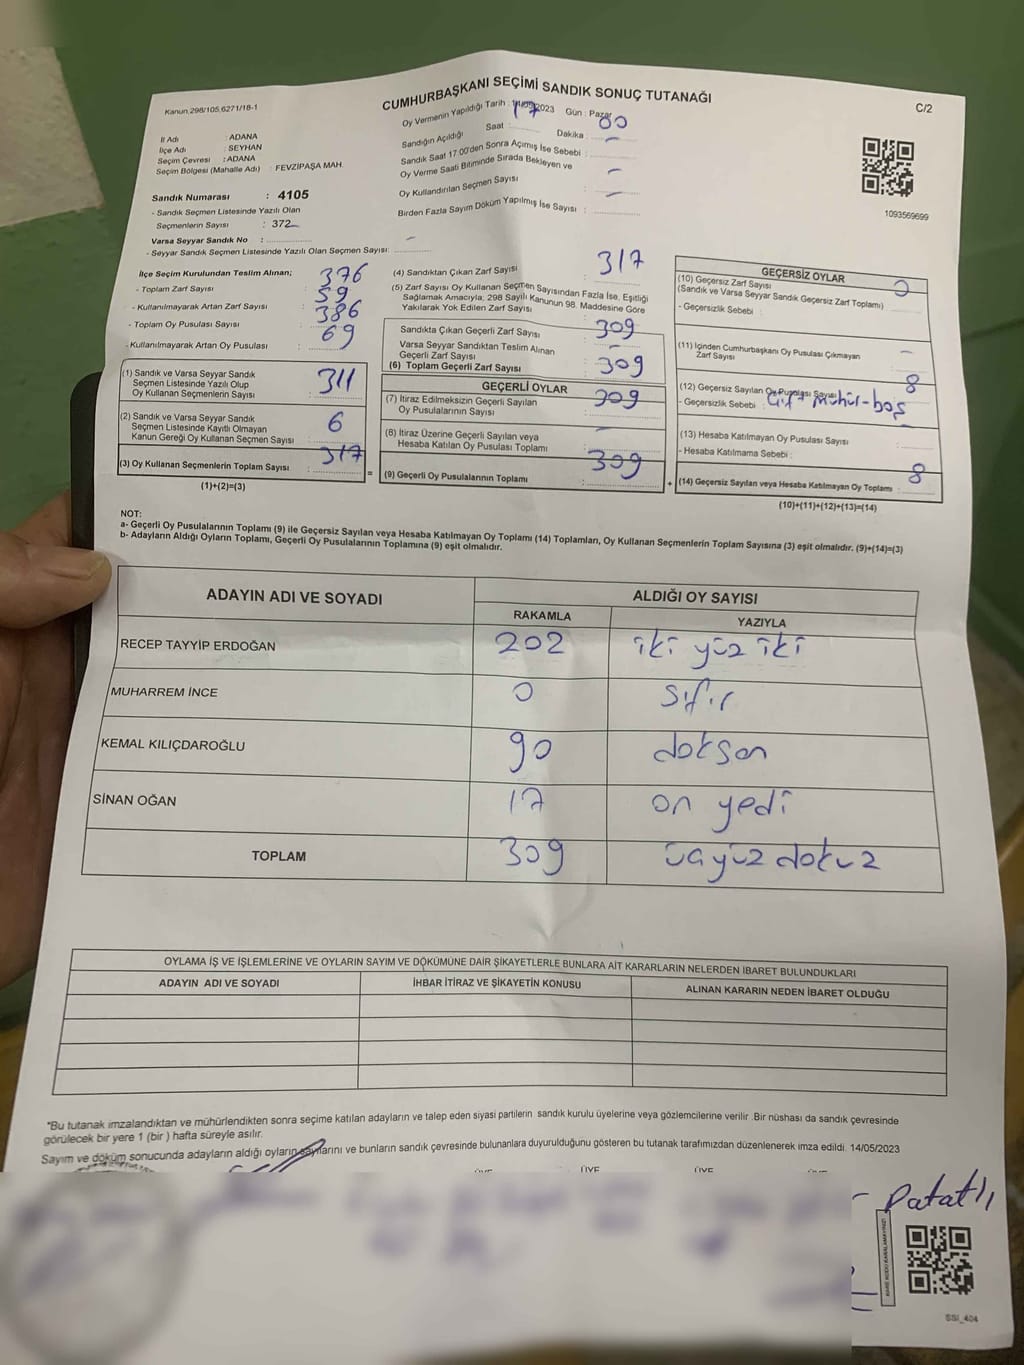 Kanun 298/105,6271/18-1
CUMHURBAŞKANI SEÇİMİ SANDIK SONUÇ TUTANAĞI
C/2
Oy Vermenin Yapıldığı Tarih : 14/05/2023 Gün : Pazar
Sandığın Açıldığı Saat : 17 Dakika : 00
Sandık Saat 17.00'den Sonra Açımış İse Sebebi : –
Oy Verme Saati Bitiminde Sırada Bekleyen ve
Oy Kullandırılan Seçmen Sayısı : –
Birden Fazla Sayım Döküm Yapılmış İse Sayısı :
İl Adı : ADANA
İlçe Adı : SEYHAN
Seçim Çevresi : ADANA
Seçim Bölgesi (Mahalle Adı) : FEVZİPAŞA MAH.
1093569699
Sandık Numarası : 4105
- Sandık Seçmen Listesinde Yazılı Olan
Seçmenlerin Sayısı : 372
Varsa Seyyar Sandık No : –
- Seyyar Sandık Seçmen Listesinde Yazılı Olan Seçmen Sayısı:
İlçe Seçim Kurulundan Teslim Alınan;
- Toplam Zarf Sayısı : 376
- Kullanılmayarak Artan Zarf Sayısı : 59
- Toplam Oy Pusulası Sayısı : 386
- Kullanılmayarak Artan Oy Pusulası : 69
(1) Sandık ve Varsa Seyyar Sandık
Seçmen Listesinde Yazılı Olup
Oy Kullanan Seçmenlerin Sayısı 311
(2) Sandık ve Varsa Seyyar Sandık
Seçmen Listesinde Kayıtlı Olmayan
Kanun Gereği Oy Kullanan Seçmen Sayısı 6
(3) Oy Kullanan Seçmenlerin Toplam Sayısı : 317
(1)+(2)=(3)
(4) Sandıktan Çıkan Zarf Sayısı : 317
(5) Zarf Sayısı Oy Kullanan Seçmen Sayısından Fazla İse, Eşitliği
Sağlamak Amacıyla; 298 Sayılı Kanunun 98. Maddesine Göre
Yakılarak Yok Edilen Zarf Sayısı :
Sandıkta Çıkan Geçerli Zarf Sayısı : 309
Varsa Seyyar Sandıktan Teslim Alınan
Geçerli Zarf Sayısı : –
(6) Toplam Geçerli Zarf Sayısı : 309
GEÇERLİ OYLAR
(7) İtiraz Edilmeksizin Geçerli Sayılan
Oy Pusulalarının Sayısı : 309
(8) İtiraz Üzerine Geçerli Sayılan veya
Hesaba Katılan Oy Pusulası Toplamı : –
= (9) Geçerli Oy Pusulalarının Toplamı : 309
GEÇERSİZ OYLAR
(10) Geçersiz Zarf Sayısı
(Sandık ve Varsa Seyyar Sandık Geçersiz Zarf Toplamı) 0
- Geçersizlik Sebebi :
(11) İçinden Cumhurbaşkanı Oy Pusulası Çıkmayan
Zarf Sayısı –
(12) Geçersiz Sayılan Oy Pusulası Sayısı 8
- Geçersizlik Sebebi : Çift mühür-boş
(13) Hesaba Katılmayan Oy Pusulası Sayısı :
- Hesaba Katılmama Sebebi :
+ (14) Geçersiz Sayılan veya Hesaba Katılmayan Oy Toplamı : 8
(10)+(11)+(12)+(13)=(14)
NOT:
a- Geçerli Oy Pusulalarının Toplamı (9) ile Geçersiz Sayılan veya Hesaba Katılmayan Oy Toplamı (14) Toplamları, Oy Kullanan Seçmenlerin Toplam Sayısına (3) eşit olmalıdır. (9)+(14)=(3)
b- Adayların Aldığı Oyların Toplamı, Geçerli Oy Pusulalarının Toplamına (9) eşit olmalıdır.
ADAYIN ADI VE SOYADI ALDIĞI OY SAYISI
RAKAMLA YAZIYLA
RECEP TAYYİP ERDOĞAN 202 iki yüz iki
MUHARREM İNCE 0 sıfır
KEMAL KILIÇDAROĞLU 90 doksan
SİNAN OĞAN 17 on yedi
TOPLAM 309 üçyüz dokuz
OYLAMA İŞ VE İŞLEMLERİNE VE OYLARIN SAYIM VE DÖKÜMÜNE DAİR ŞİKAYETLERLE BUNLARA AİT KARARLARIN NELERDEN İBARET BULUNDUKLARI
ADAYIN ADI VE SOYADI İHBAR İTİRAZ VE ŞİKAYETİN KONUSU ALINAN KARARIN NEDEN İBARET OLDUĞU
"Bu tutanak imzalandıktan ve mühürlendikten sonra seçime katılan adayların ve talep eden siyasi partilerin sandık kurulu üyelerine veya gözlemcilerine verilir .Bir nüshası da sandık çevresinde
görülecek bir yere 1 (bir ) hafta süreyle asılır.
Sayım ve döküm sonucunda adayların aldığı oyların sayılarını ve bunların sandık çevresinde bulunanlara duyurulduğunu gösteren bu tutanak tarafımızdan düzenlenerek imza edildi. 14/05/2023
ÜYE ÜYE ÜYE
Patatlı
KARE KODU KARALAMAYINIZ!
SSI_404